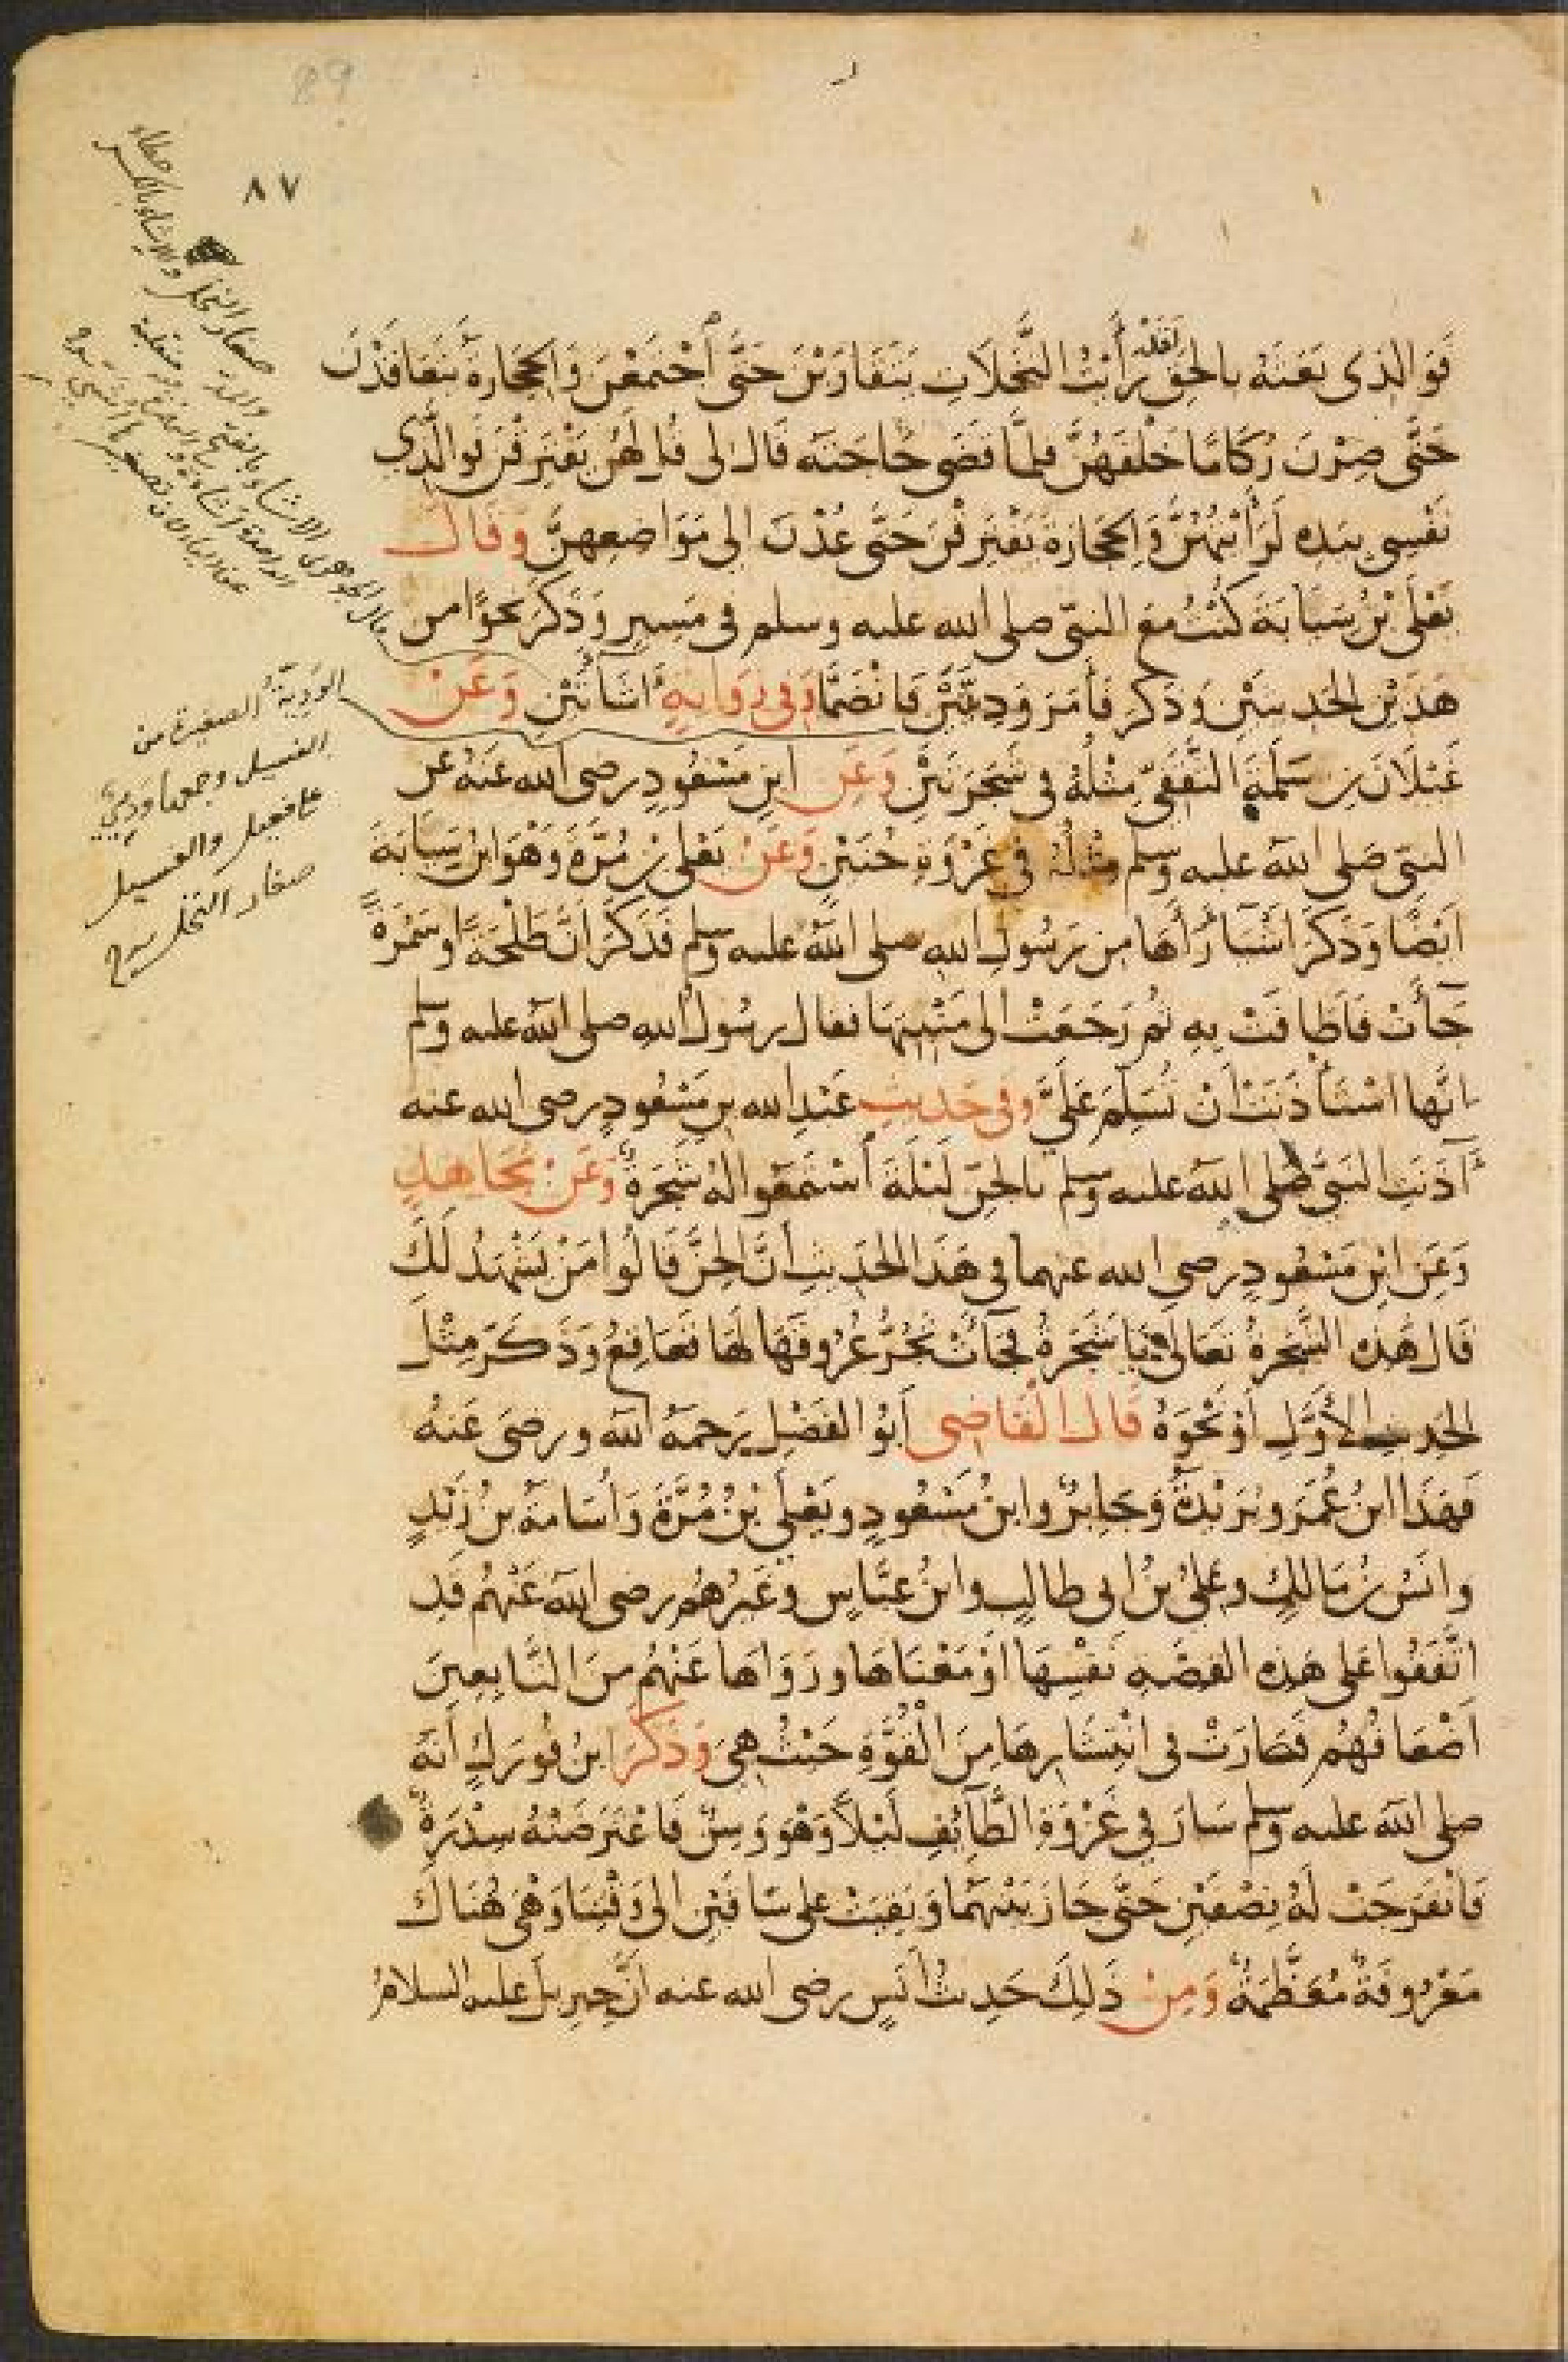 89
٨٧
فَوَالَّذِى بَعَثَهُ بالحق لَقَدْ رَأَيْتُ النَّخَلَاتِ يَتَقَارَبْنَ حَتَّى اجْتَمَعْنَ وَالحِجَارَةَ يَتَعَاقَدْنَ
حَتَّى صِرْنَ رُكَامًا خَلْفَهُنَّ فلمَّا قَضَى حَاجَتَه قَالَ لِى قُل لَهُنَّ يَفْتَرِقْنَ فَوالَّذِي
نَفْسِي بيَدِه لَرَأَيْتُهُنَّ وَالحِجَارَة يَفْتَرِقْنَ حَتَّى عُدْنَ الى مَوَاضِعِهِنَّ وَقَالَ
يَعْلَى بْنُ سَيَابَةَ كُنْتُ مَعَ النبىّ صلى الله عليه وسلم فى مَسِيرٍ وَذَكَرَ نَحوًا من
هَذَيْنِ الحَدِيثَيْنِ وَذَكَر فَأَمَرَ وَدِيَّتَيْنِ فَانْضَمَّتَا وَفِى رِوَايةٍ اشَاءَتَيْنِ وَعَنْ
غَيْلَانَ بن سَلَمَةَ الثَّقَفِىّ مِثْلُهُ فِى شَجَرَتَيْنِ وَعَنِ ابنِ مَسْعُودٍ رضى الله عَنهُ عن
النبىّ صَلى الله عليه وسلم مِثْلُهُ فِى غَزْوَةِ حُنَيْنٍ وَعَنْ يَعْلَى بْنِ مُرَّةَ وَهْوَ ابنُ سَيَابَةَ
اَيْضًا وَذَكَرَ اَشْيَا رَأَهَا مِن رَسُولِ الله صلى الله عليه وسلم فَذَكَرَ أَنَّ طَلْحَةً او سَمُرَةً
جَآءَتْ فَاَطَافَتْ بِهِ ثُمَّ رَجَعَتْ الى مَنْبِتِهَا فقال رسُولُ اللهِ صلى الله عليه وسلم
انَّهَا اسْتَأْذَنَتْ أَنْ تُسَلِّمَ عَلَيَّ وفى حَدِيثِ عَبْدِ الله بنِ مَسْعُودٍ رضى الله عنه
آذَنَتِ النَّبىَّ صلى الله عليه وسلم بالجِنّ لَيْلَةَ اسْتَمَعُوا لَهُ شَجَرَةٌ وَعَنْ مُجَاهدٍ
وَعَنِ ابْنِ مَسْعُودٍ رضي الله عنهما فى هَذَا الحَدِيثِ أَنَّ الجِنَّ قَالُوا مَنْ يَشْهَدُ لَكَ
قَالَ هَذِه الشَّجَرةُ تَعَالَى يَا شَجَرَةُ فجَآءَتْ تَجُرُّ عُرُوقَهَا لَهَا قَعَاقِعُ وَذَكَرَ مِثْلَ
الحَدِيثِ الأَوَّلِ أَوْ نَحْوَهُ قَالَ القَاضِى أَبُو الفَضْلِ رَحِمَهُ الله ورضىَ عَنهُ
فَهَذَا ابنُ عُمَرَ وبُرَيْدَةُ وَجَابِرٌ وابنُ مَسْعُودٍ ويَعْلَى بْنُ مُرَّةَ وَأُسَامَةُ بنُ زَيْدٍ
وانَسُ بْنُ مَالِكٍ وعَلِيُّ بْنُ ابى طالبٍ وابنُ عبَّاسٍ وَغَيْرُهُم رضى الله عَنْهُم قَد
اتَّفَقُوا عَلَى هَذِه القصَّهِ نَفْسِهَا اوْ مَعْنَاهَا ورَوَاهَا عَنْهُم مِنَ التَّابِعِينَ
اَضْعَافُهُم فَصَارَتْ فى انْتِشَارِهَا مِنَ الْقُوَّةِ حَيْثُ هِىَ وَذَكَرَ ابنُ فُورَكٍ أَنَّهُ
صلى الله عليه وسلم سَارَ فى غَزْوَةِ الطَّآئِفِ لَيْلاً وَهْوَ وَسِنٌ فَاعْتَرَضَتْهُ سِدْرَةٌ
فَانْفَرَجَتْ لَهُ نِصْفَيْنِ حَتَّى جَازَ بَيْنَهُمَا وَبَقِيَتْ على سَاقَيْنِ الى وَقْتِنَا وَهْىَ هُنَاكَ
مَعْرُوفَةٌ مُعَظَّمَةٌ وَمِنْ ذَلِكَ حَدِيثُ أَنَسٍ رضى الله عنه أَنَّ جِبرِيلَ عليه السلامُ
قال الجوهرى الاشاء بالفتح والمد صغار النخل
الوَدِيّة الصغيرة من
الفسيل وجمعها وَدِيّ
على فعيل والفسيل
صغار النخل